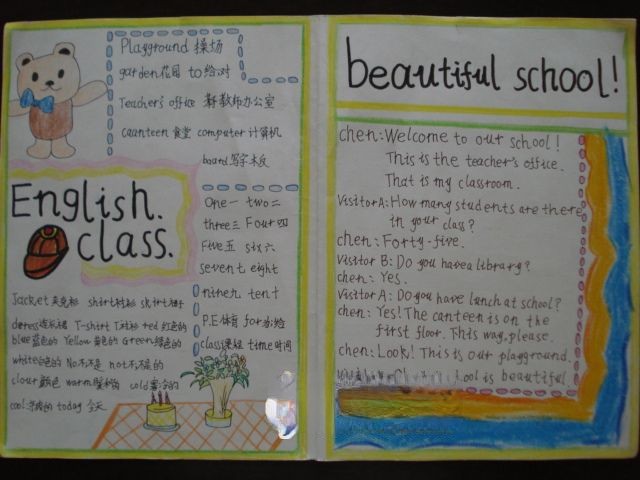 Playground 操场
garden花园 to给.对
Teacher's office 教师办公室
caanteen 食堂 computer 计算机
board写字木反
English.
class.
One一 two二
three三 Four四
Five五 six六
seven七 eight
nine九 ten十
P.E.体育 for
class课程 time时间
Jacket夹克衫 shirt衬衫 skirt
T-shirt T恤衫 red 红色的
blue蓝色的 Yellow黄色的 Green绿色的
white白色的 No不,不是 not不,不是的
clour颜色 warm暖和的 cold寒冷的
cool凉爽的 today 今天
beautiful school!
chen:Welcome to our school!
This is the teacher's office.
That is my classroom.
Visitor A:How many students are there
in your class?
chen: Forty-five.
Visitor B: Do you have a library?
chen: Yes.
Visitor A: Do you have lunch at school?
chen: Yes! The canteen is on the
first floor. This way, please.
chen: Look! This is our playground.
is beautiful